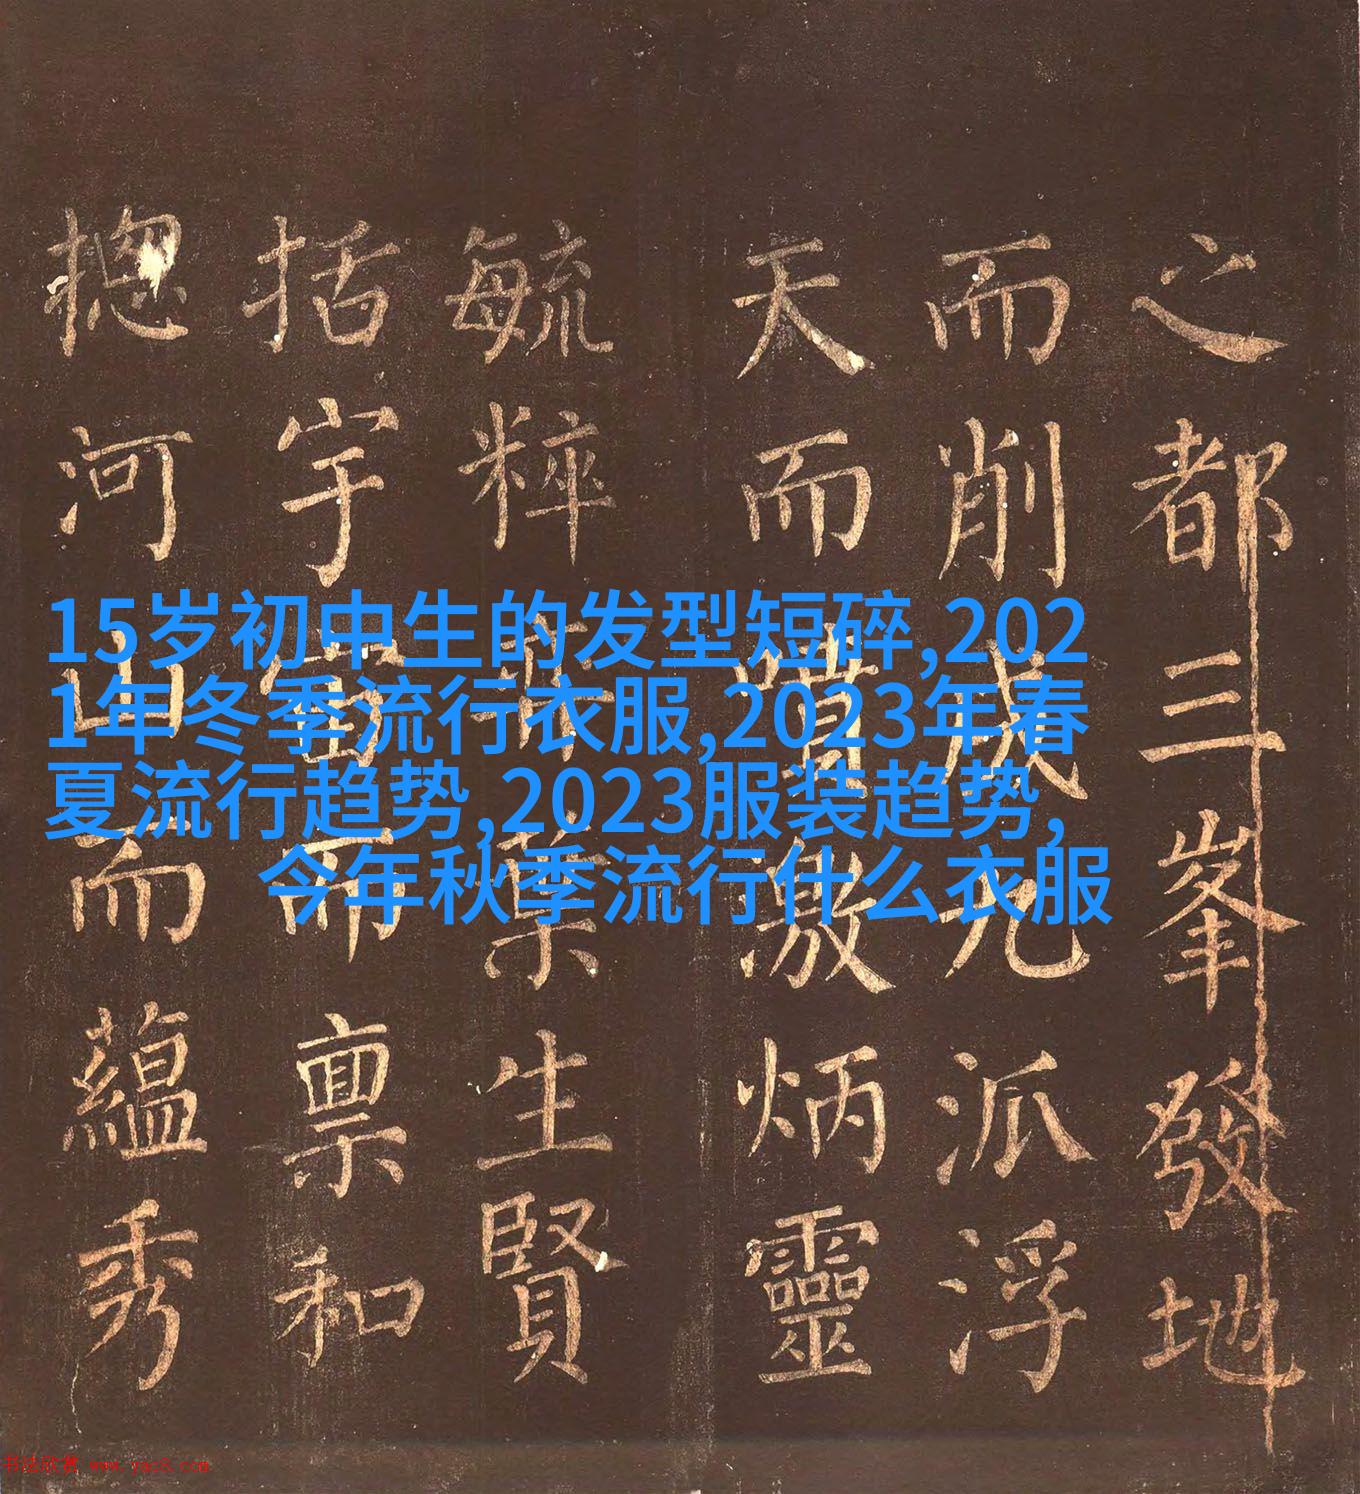 之都三峯發地
而削成九派浮
天而噴激炳靈
毓粹弈葉生賢
括宇宙而禀和
揔河山而蘊秀
15岁初中生的发型短碎,202
1年冬季流行衣服,2023年春
夏流行趋势,2023服装趋势,
今年秋季流行什么衣服
书法欣赏 www.yac8.com